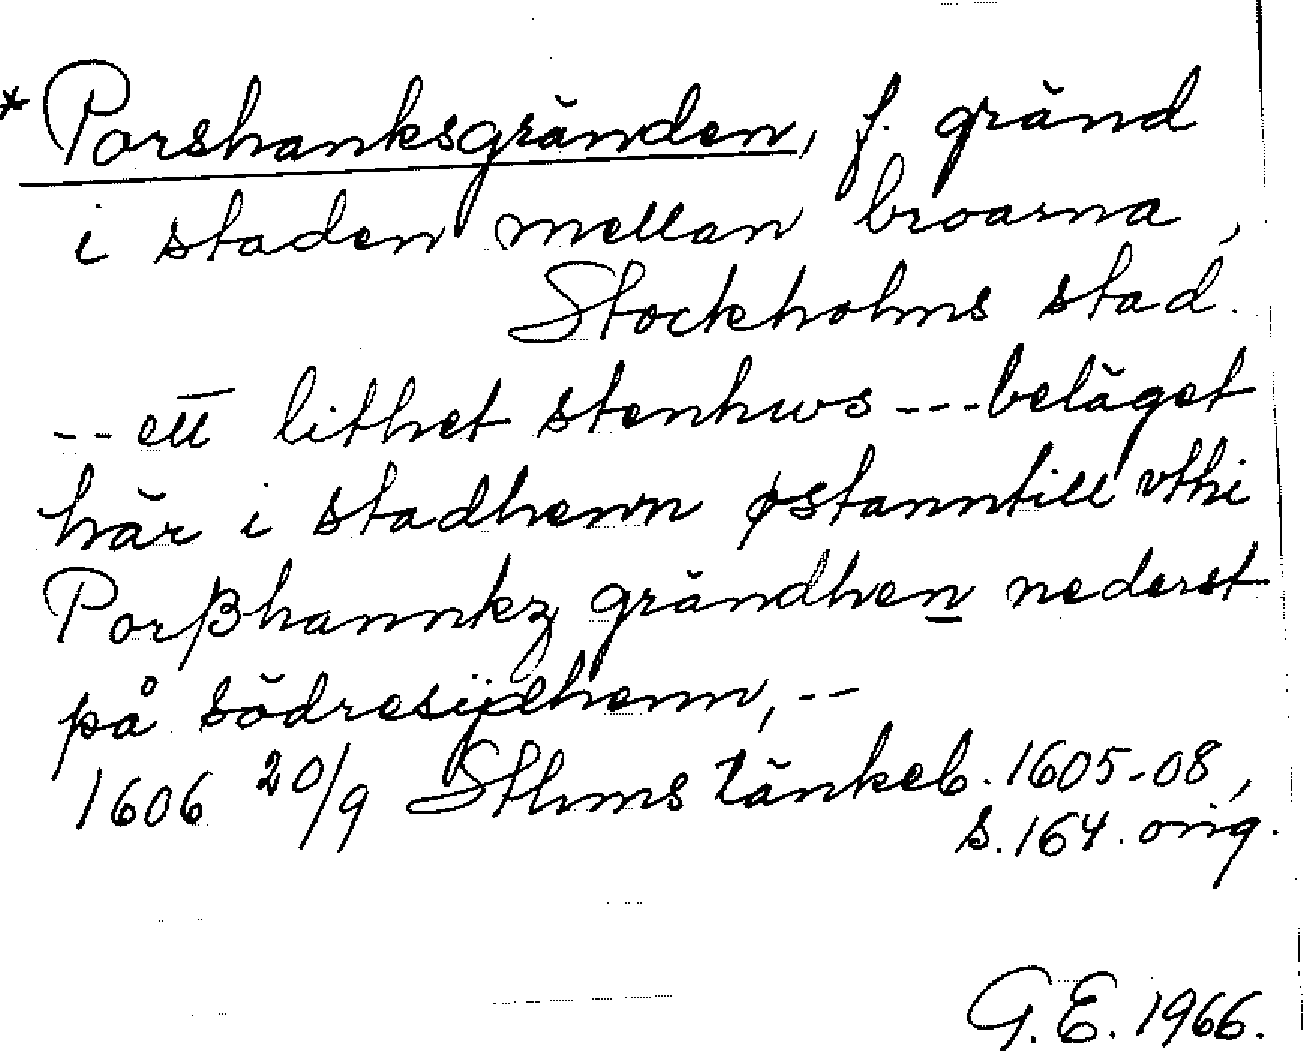 * Porshanksgränden, f. gränd
i staden mellan broarna,
Stockholms stad.
-- ett lithet stenhws --- beläget
här i stadhenn østanntill vthi
Porßhannkz grändhen nederst
på södresijdhenn, --
1606 20/9 Sthms tänkeb. 1605-08,
s. 164. orig.
G. E. 1966.